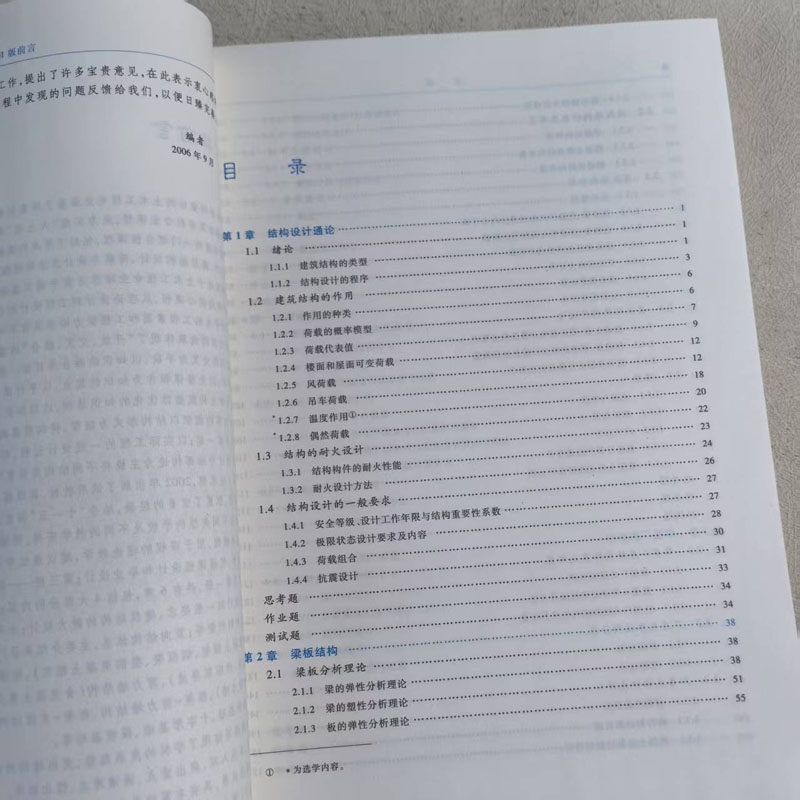 版前言
工作，提出了许多宝贵意见，在此表示衷心
程中发现的问题反馈给我们，以便日臻完
编者
2006年9月
目 录
第1章 结构设计通论 …… 1
1.1 绪论 …… 1
1.1.1 建筑结构的类型 …… 1
1.1.2 结构设计的程序 …… 3
1.2 建筑结构的作用 …… 6
1.2.1 作用的种类 …… 6
1.2.2 荷载的概率模型 …… 7
1.2.3 荷载代表值 …… 9
1.2.4 楼面和屋面可变荷载 …… 12
1.2.5 风荷载 …… 12
1.2.6 吊车荷载 …… 18
*1.2.7 温度作用① …… 20
*1.2.8 偶然荷载 …… 22
1.3 结构的耐火设计 …… 23
1.3.1 结构构件的耐火性能 …… 24
1.3.2 耐火设计方法 …… 26
1.4 结构设计的一般要求 …… 27
1.4.1 安全等级、设计工作年限与结构重要性系数 …… 27
1.4.2 极限状态设计要求及内容 …… 28
1.4.3 荷载组合 …… 30
1.4.4 抗震设计 …… 31
思考题 …… 33
作业题 …… 34
测试题 …… 34
第2章 梁板结构 …… 38
2.1 梁板分析理论 …… 38
2.1.1 梁的弹性分析理论 …… 38
2.1.2 梁的塑性分析理论 …… 51
2.1.3 板的弹性分析理论 …… 55
① *为选学内容。